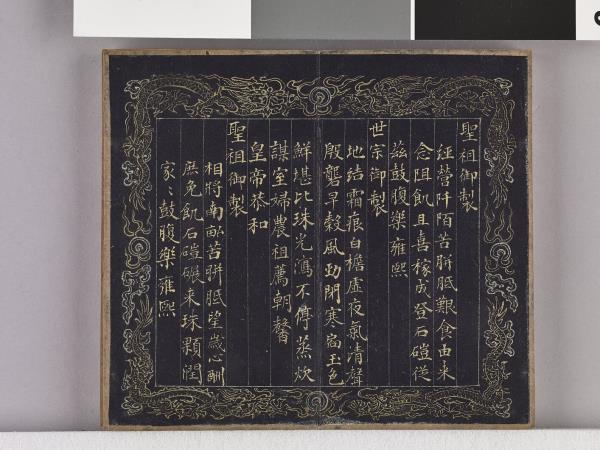 聖祖御製
經營阡陌苦胼胝艱食由來
念阻飢且喜稼成登石磑從
茲鼓腹樂雍熙
世宗御製
地結霜痕白檐虛夜氣清聲
殷礱早穀風勁閉寒窗玉色
鮮堪比珠光瀉不停蒸炊
謀室婦農祖薦朝馨
皇帝恭和
聖祖御製
相將南畝苦胼胝望歲心酬
庶免飢石磑碾來珠顆潤
家〻鼓腹樂雍熙